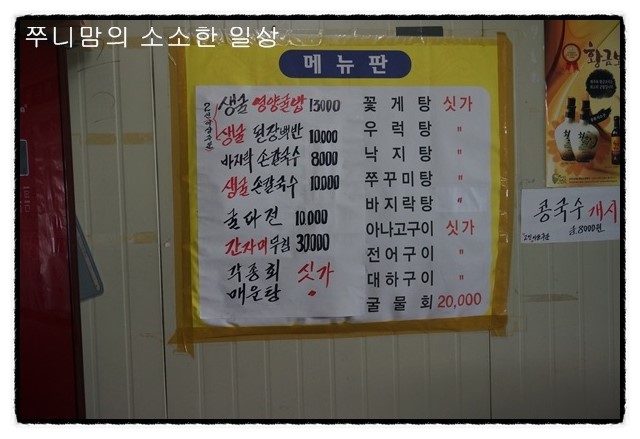 쭈니맘의 소소한 일상
메뉴판
생굴 영양굴밥 13000
생굴 된장백반 10,000
바지락 손칼국수 8000
생굴 손칼국수 10,000
굴파전 10,000
간자미무침 30000
각종회 싯가
매운탕 〃
꽃게탕 싯가
우럭탕 〃
낙지탕 〃
쭈꾸미탕 〃
바지락탕 〃
아나고구이 싯가
전어구이 〃
대하구이 〃
굴물회 20,000
황금보
콩국수 개시
8000원